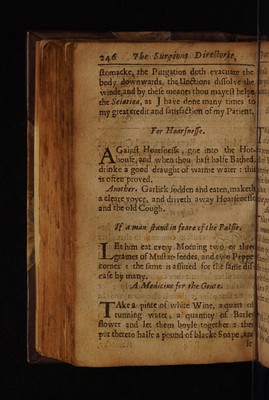 246 The Surgions Directorie,
stomacke, the Purgation doth evacuate the
body downwards, the Unctions dissolve the
winde, and by these meanes thou mayest helpe
the Sciatica, as I have done many times to
my great credit and satisfaction of my Patient.
For Hoarsnesse.
AGainst Hoarsnesse, goe into the Hot-
house, and when thou hast halfe Bathed,
drinke a good draught of warme water : this
is often proved.
Another. Garlick sodden and eaten, maketh
a cleare voyce, and driveth away Hoarsenesse
and the old Cough.
If a man stand in feare of the Palsie.
LEt him eat every Morning two or three
graines of Mustar-seedes, and two Pepper
cornes : the same is assured for the same dis-
ease by many.
A Medicine for the Goute.
TAke a pinte of white Wine, a quart of
running water, a quantity of Barley
flower and let them boyle together : then
put thereto halfe a pound of blacke Sope,